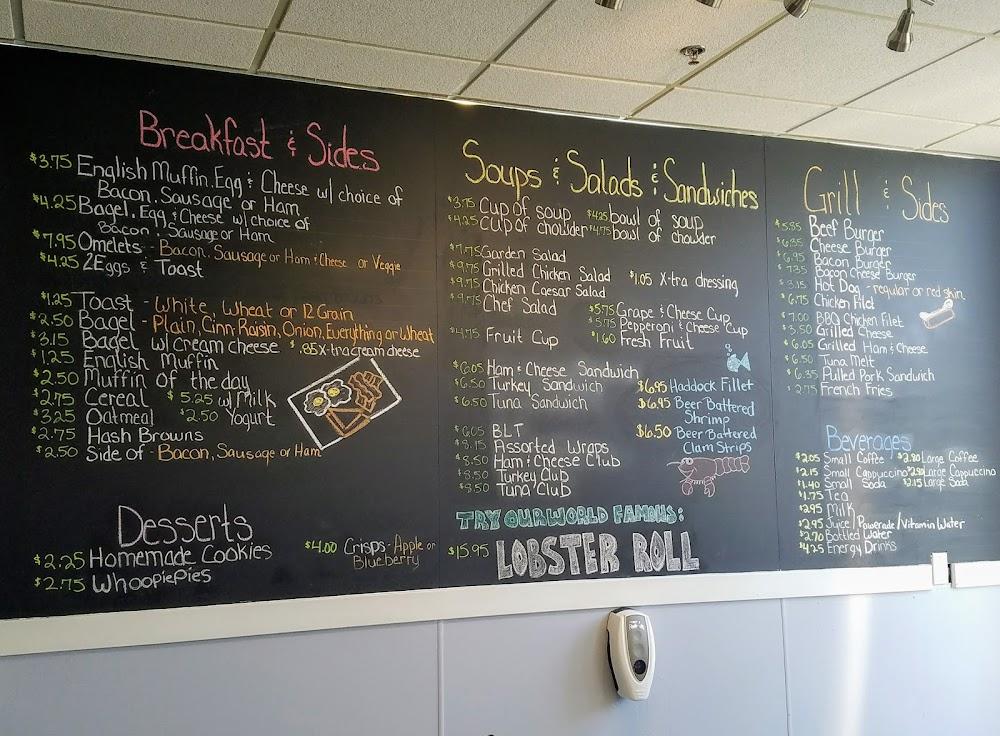 Breakfast & Sides
$3.75 English Muffin. Egg & Cheese w/ choice of
Bacon, Sausage or Ham
$4.25 Bagel, Egg & Cheese w/ choice of
Bacon, Sausage or Ham
$7.95 Omelets - Bacon, Sausage or Ham & Cheese or Veggie
$4.25 2 Eggs & Toast
$1.25 Toast - White, Wheat or 12 Grain
$2.50 Bagel - Plain, Cinn-Raisin, Onion, Everything or Wheat
$3.15 Bagel w/ cream cheese $.85 x-tra cream cheese
$1.25 English Muffin
$2.50 Muffin of the day
$2.75 Cereal $5.25 w/ Milk
$3.25 Oatmeal $2.50 Yogurt
$2.75 Hash Browns
$2.50 Side of - Bacon, Sausage or Ham
Desserts
$2.25 Homemade Cookies
$2.75 Whoopiepies
$4.00 Crisps - Apple or
Blueberry
Soups & Salads & Sandwiches
$3.75 Cup of soup $4.25 bowl of soup
$4.25 Cup of chowder $4.75 bowl of chowder
$7.75 Garden Salad
$9.75 Grilled Chicken Salad $1.05 x-tra dressing
$9.75 Chicken Caesar Salad
$9.75 Chef Salad
$5.75 Grape & Cheese Cup
$5.75 Pepperoni & Cheese Cup
$4.75 Fruit Cup $1.60 Fresh Fruit
$6.05 Ham & Cheese Sandwich
$6.50 Turkey Sandwich
$6.50 Tuna Sandwich
$6.95 Haddock Fillet
$6.95 Beer Battered
Shrimp
$6.50 Beer Battered
Clam Strips
$6.05 BLT
$8.15 Assorted Wraps
$8.50 Ham & Cheese Club
$8.50 Turkey Club
$8.50 Tuna Club
TRY OUR WORLD FAMOUS:
$15.95 LOBSTER ROLL
Grill & Sides
$5.85 Beef Burger
$6.35 Cheese Burger
$6.95 Bacon Burger
$7.35 Bacon Cheese Burger
$3.15 Hot Dog - regular or red skin
$6.75 Chicken Filet
$7.00 BBQ Chicken Filet
$3.50 Grilled Cheese
$6.05 Grilled Ham & Cheese
$6.50 Tuna Melt
$6.35 Pulled Pork Sandwich
$2.75 French Fries
Beverages
$2.05 Small Coffee $2.80 Large Coffee
$2.15 Small Cappuccino Large Cappuccino
$1.40 Small Soda $2.15 Large Soda
$1.75 Tea
$2.95 Milk
$2.95 Juice/Powerade/Vitamin Water
$2.70 Bottled Water
$4.25 Energy Drinks